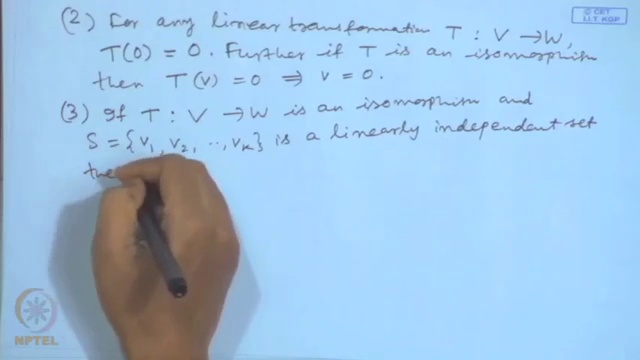 (2) For any linear transformation T : V → W,
T(0) = 0. Further if T is an isomorphism
then T(v) = 0 ⟹ v = 0.
(3) If T : V → W is an isomorphism and
S = {v₁, v₂, .., vₖ} is a linearly independent set
the
© CET
I.I.T. KGP
NPTEL